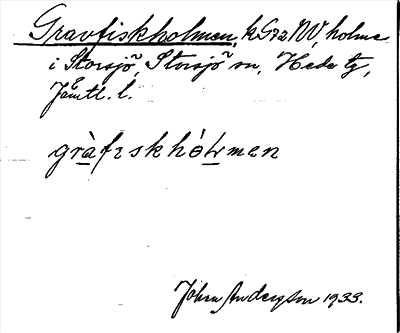 Gravfiskholmen, k.G72NV, holme
i Storsjö, Storsjö sn, Hede tg,
Jämtl. l.
gràfɪskhòlmen
John Anderzson 1933.